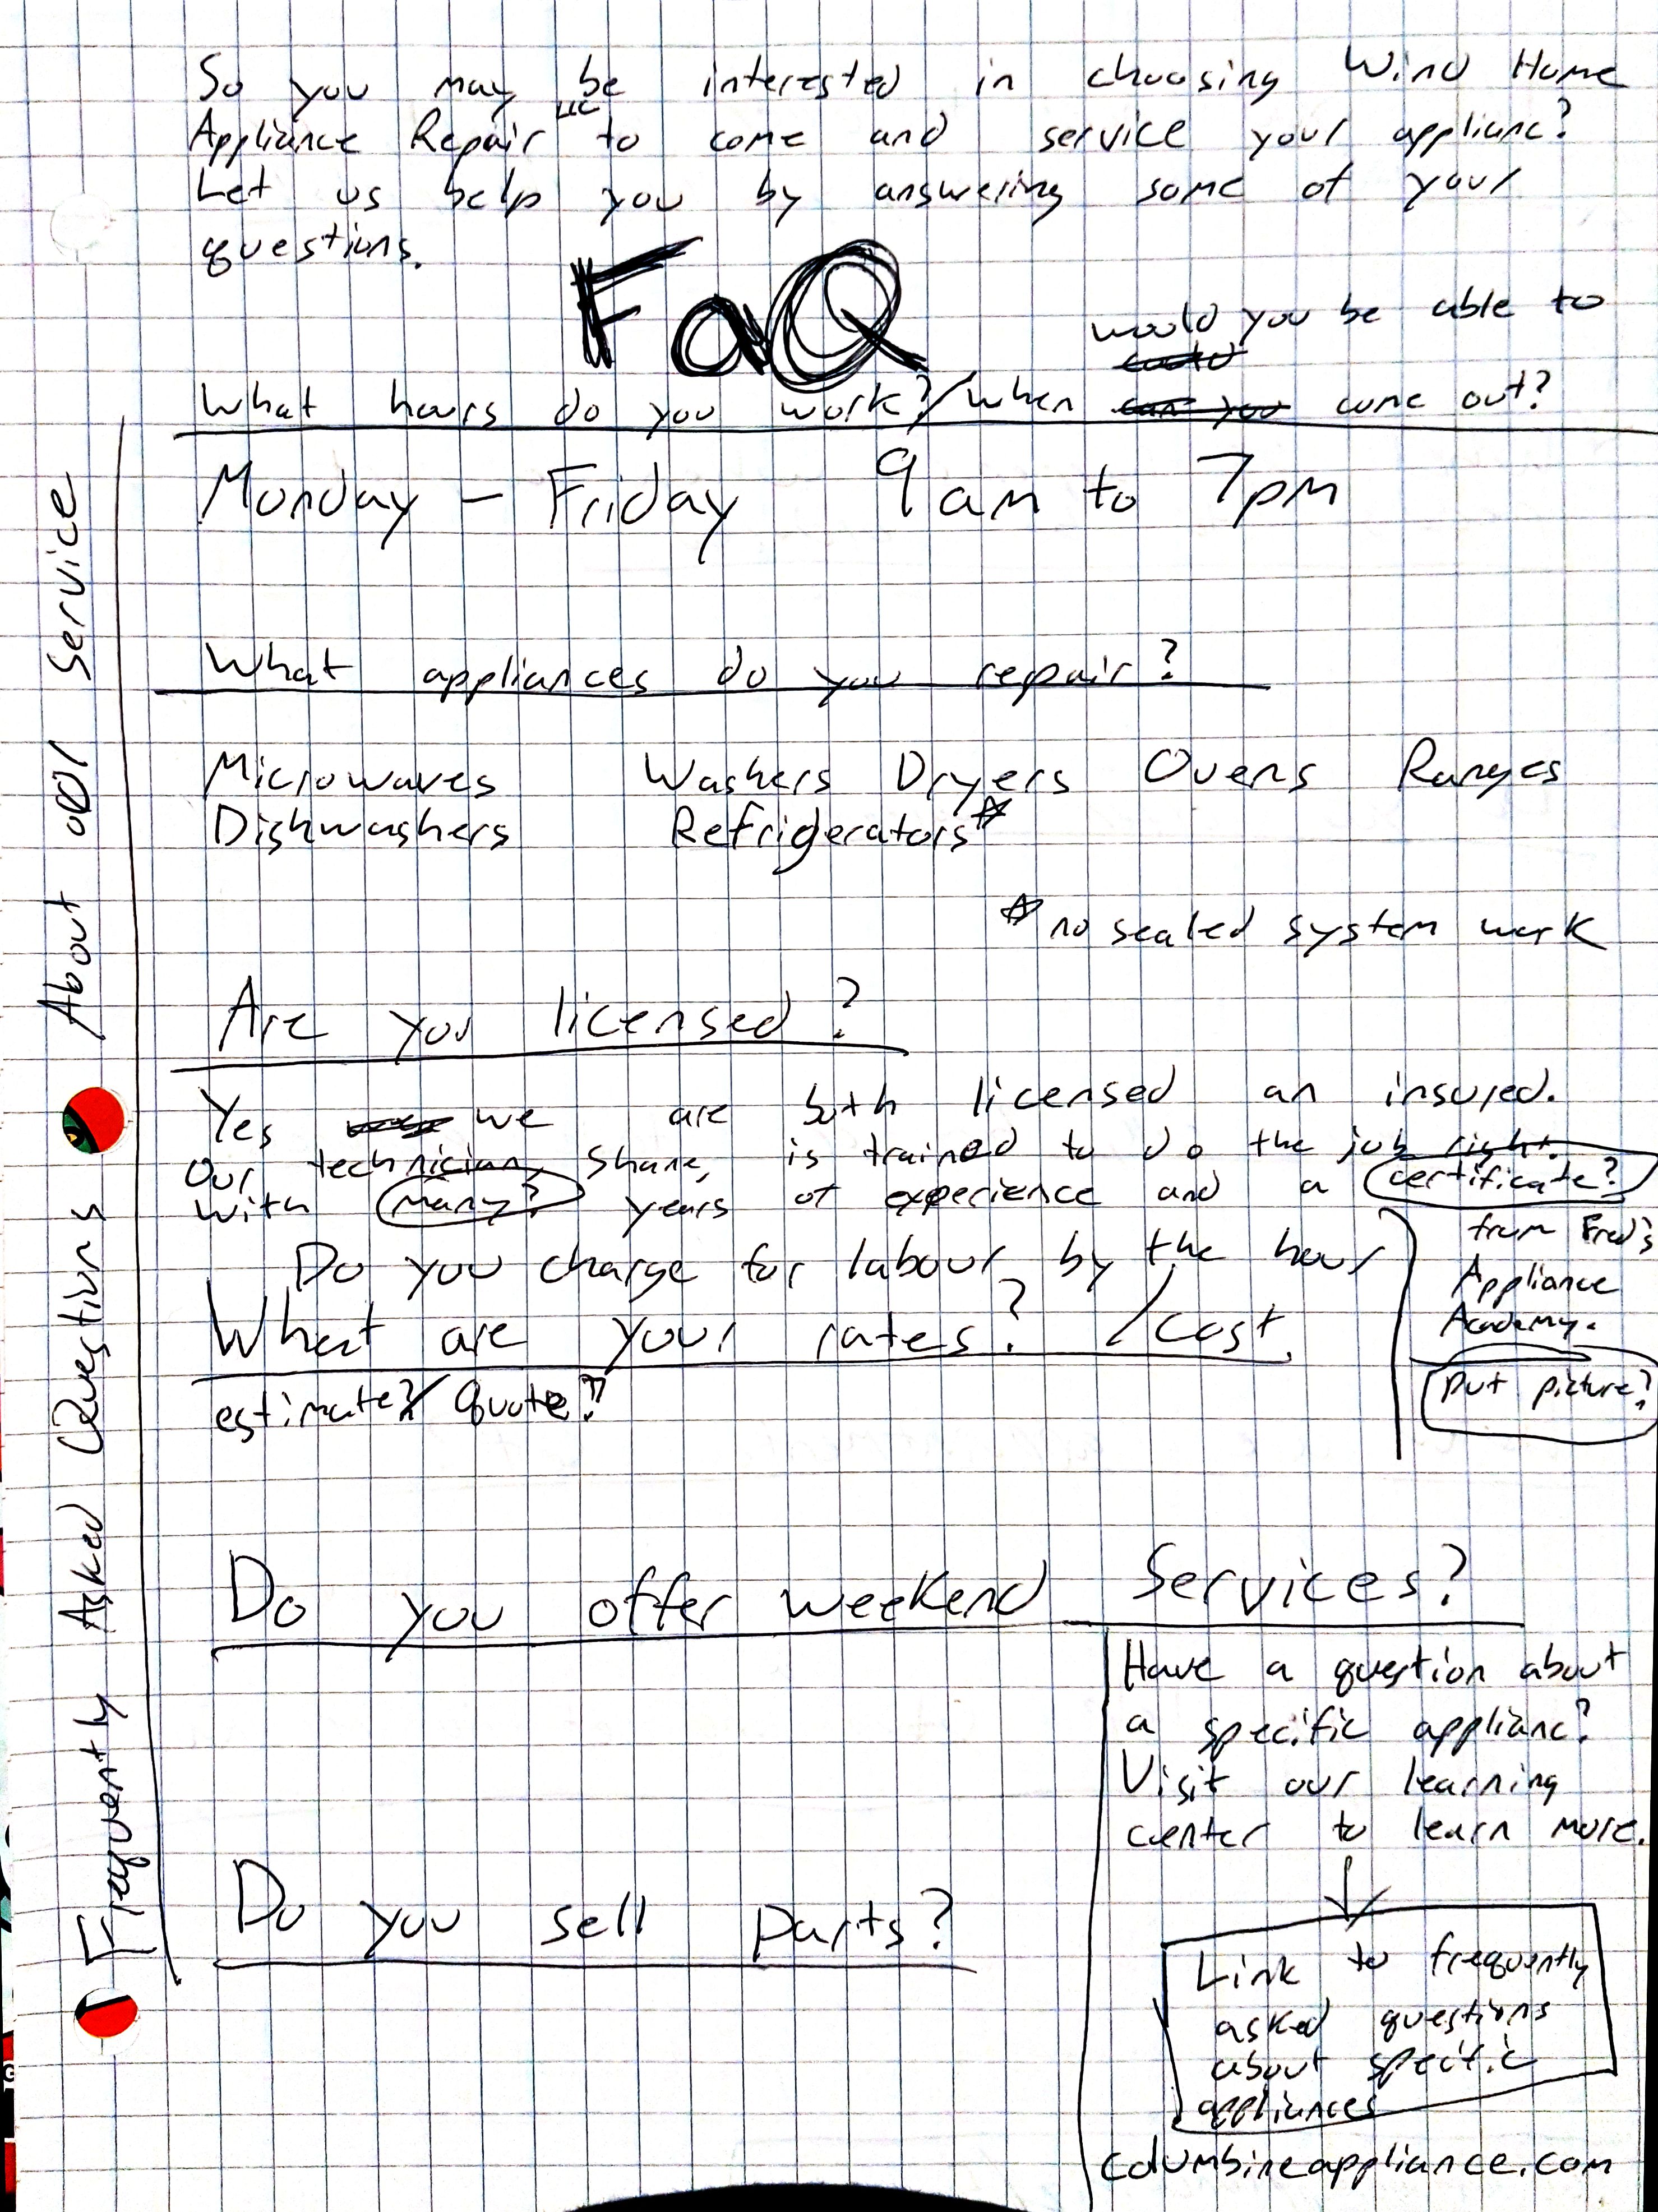 So you may be interested in choosing Wind Home
Appliance Repair LLC to come and service your applianc?
Let us help you by answering some of your
questions.
FaQ
would you be able to
could
What hours do you work?/When can you come out?
Monday - Friday 9am to 7pm
What appliances do you repair?
Microwaves Washers Dryers Ovens Ranges
Dishwashers Refrigerators*
* no sealed system work
Are you licensed?
Yes we are both licensed an insured.
Our technician, Shane, is trained to do the job right.
With many? years of experience and a certificate?
from Fred's
Appliance
Academy.
put picture?
Do you charge for labour by the hour
What are your rates? /cost
estimate?/ Quote?
Do you offer weekend Services?
Have a question about
a specific applianc?
Visit our learning
center to learn more.
Link to frequently
asked questions
about specific
appliances
columbineappliance.com
Do you sell parts?
Frequently Asked Questions About our Service